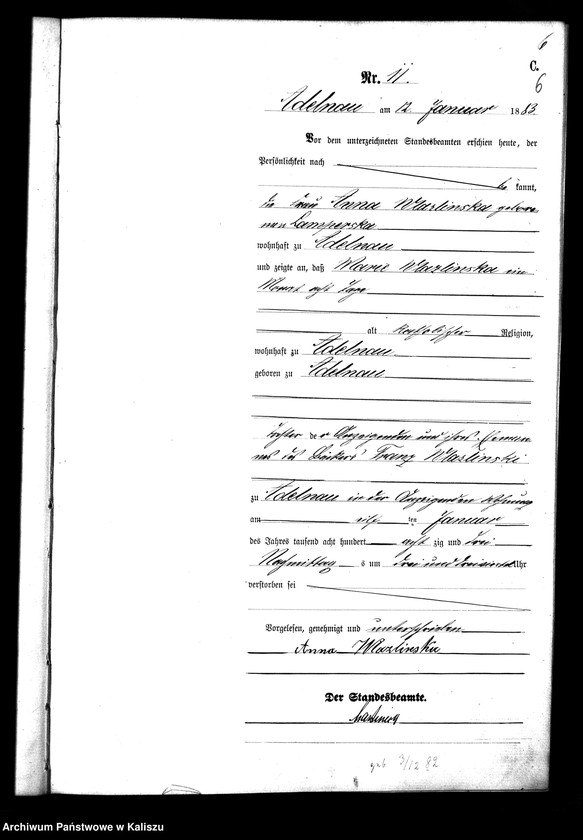 6
C.
6
Nr. 11.
Adelnau am 12 Januar 1883
Vor dem unterzeichneten Standesbeamten erschien heute, der
Persönlichkeit nach
be kannt,
die Frau Anna Wazlinska gebore
nen Lamperska
wohnhaft zu Adelnau
und zeigte an, daß Marie Wazlinska ein
Monat acht Tage
alt katholischer Religion,
wohnhaft zu Adelnau
geboren zu Adelnau
Tochter der Anzeigenden und ihres Eheman
nes des Bäckers Franz Wazlinski
zu Adelnau in der Anzeigenden Wohnung
am elf ten Januar
des Jahres tausend acht hundert acht zig und drei
Nachmittag s um drei und dreiviertel Uhr
verstorben sei
Vorgelesen, genehmigt und unterschrieben
Anna Wazlinska
Der Standesbeamte.
geb 3/12 82
Archiwum Państwowe w Kaliszu